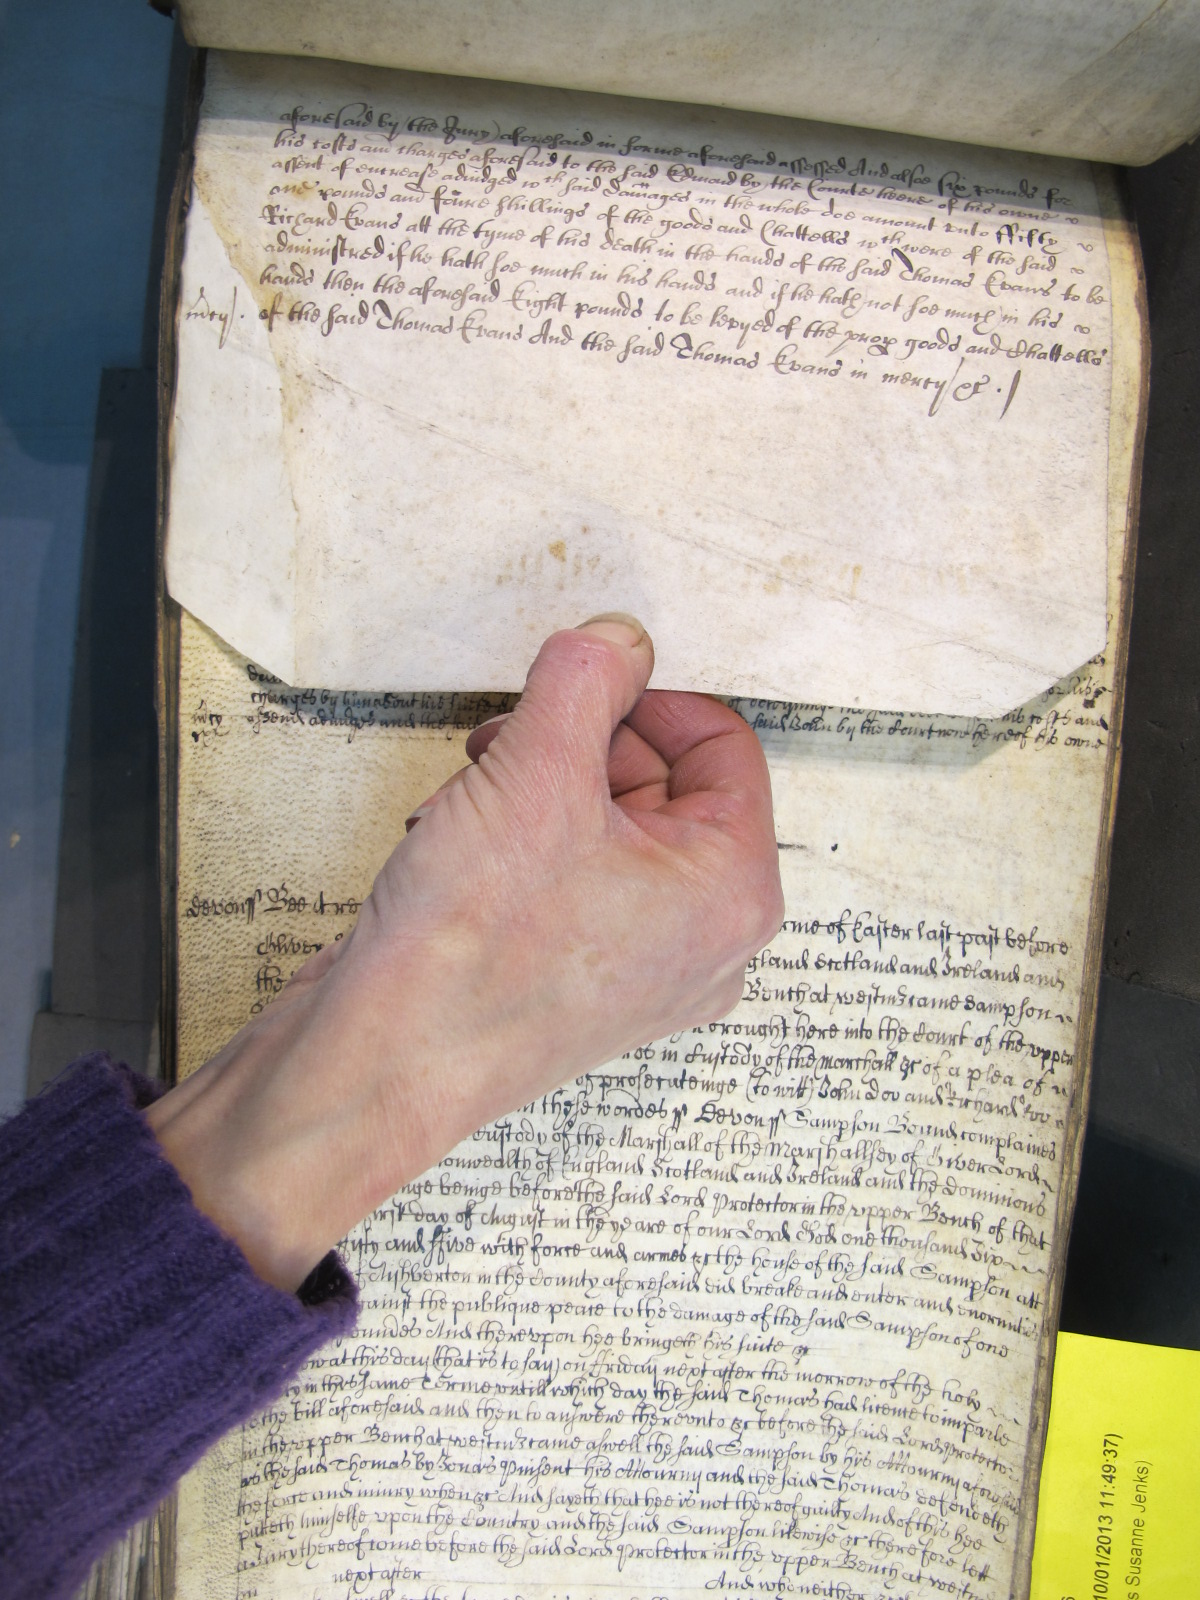 aforesaid by the Jury aforesaid in forme aforesaid assessed And alsoe six pounds for
his costs and charges aforesaid to the said Edmund by the Courte heere of his owne
assent of encrease adiudged wch said damages in the whole doe amount unto ffifty
one pounds and foure shillings of the goods and Chattells wch were of the said
Richard Evans att the tyme of his death in the hands of the said Thomas Evans to be
administred if he hath soe much in his hands and if he hath not soe much in his
hands then the aforesaid Eight pounds to be levyed of the prop goods and Chattells
mcy. of the said Thomas Evans And the said Thomas Evans in mercy &c.
charges by him about his suite costs and
mcy assend adiudged and the said said John by the Court now here of his owne
devonss Bee it re rme of Easter last past before
Oliver gland Scotland and Ireland and
the Bench at westmr came Sampson
brought here into the Court of the upper
in Custody of the marshall &c of a plea of
of prosecuteinge (to witt) John Doo and Richard Roo
in these wordes ss Devonss Sampson Bound complaines
Custody of the Marshall of the Marshallsey of Oliver Lord
onwealth of England Scotland and Ireland and the dominions
nge beinge before the said Lord Protector in the upper Bench of that
first day of August in the yeare of our Lord God one thousand Six
fifty and ffive with force and armes &c the house of the said Sampson att
Aishberton in the County aforesaid did breake and enter and enormities
gainst the publique peace to the damage of the said Sampson of one
poundes And thereupon hee bringeth his suite &c
ow at this day that is to say on ffriday next after the morrow of the holy
in this same Terme untill which day the said Thomas had licence to imparle
the bill aforesaid and then to answere thereunto &c before the said Lord Protector
in the upper Bench at westmr came aswell the said Sampson by his Attourny aforesaid
as the said Thomas by Jonas Pinsent his Attourny and the said Thomas defendeth
the force and iniury when &c And sayeth that hee is not thereof guilty And of this hee
putteth himselfe upon the Country and the said Sampson likewise &c therefore lett
a Jury thereof come before the said Lord Protector in the upper Bench at westmr
next after And who neither
10/01/2013 11:49:37)
s Susanne Jenks)